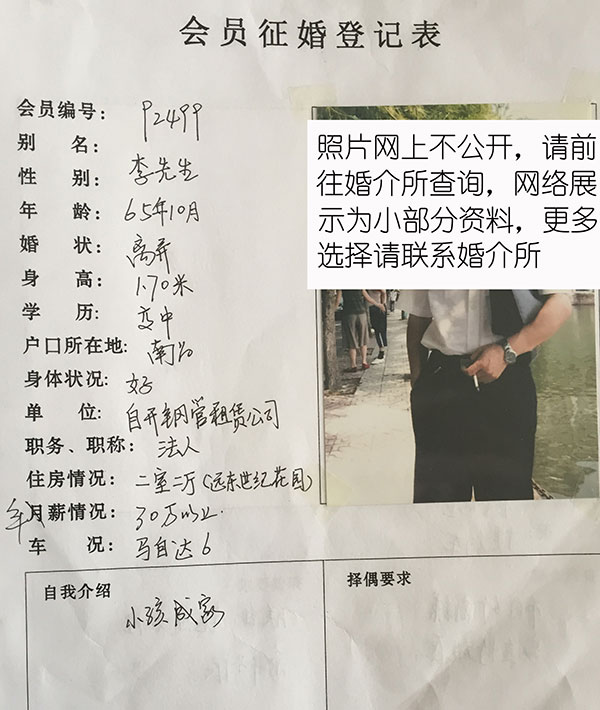 会员征婚登记表
会员编号: P2499
别 名: 李先生
性 别:
年 龄: 65年10月
婚 状: 离异
身 高: 1.70米
学 历: 高中
户口所在地: 南昌
身体状况: 好
单 位: 自开钢管租赁公司
职务、职称: 法人
住房情况: 二室二厅(远东世纪花园)
年月薪情况: 30万以上.
车 况: 马自达6
自我介绍
小孩成家
择偶要求
照片网上不公开，请前
往婚介所查询，网络展
示为小部分资料，更多
选择请联系婚介所